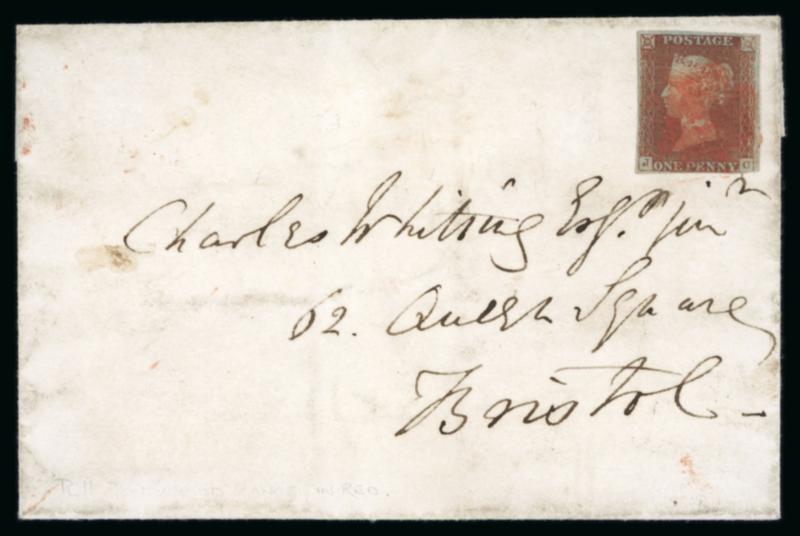 POSTAGE
J G
ONE PENNY
Charles Whitting Esqr. junr
62. Queen Square
Bristol
Pl 11 IN RED.